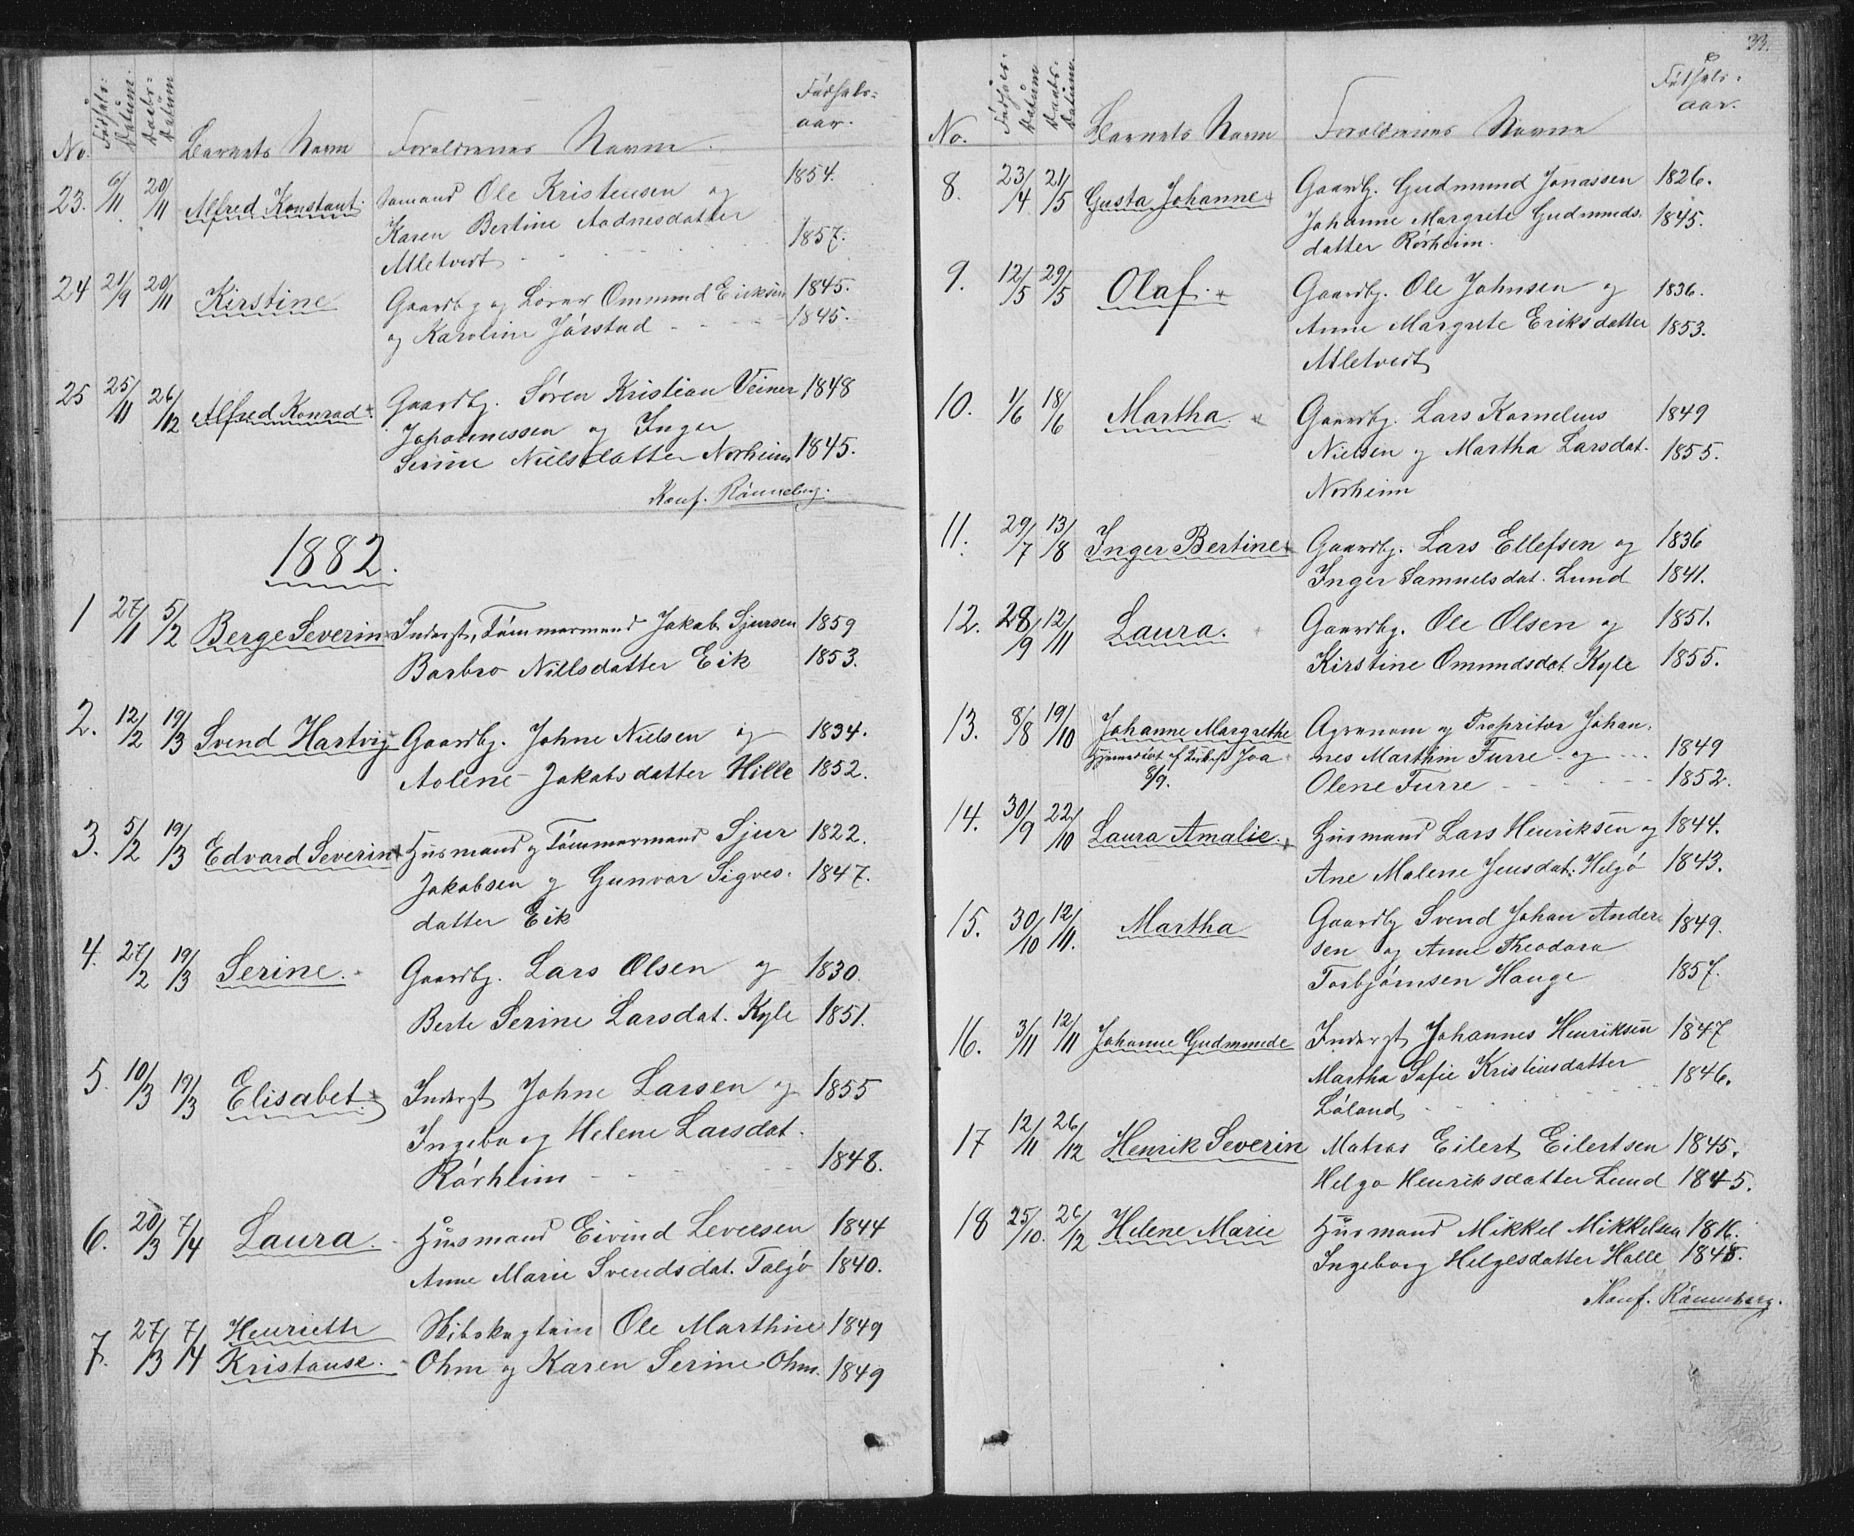 No. Fødsels-Datum. Daabs-Datum Barnets Navn Forældrenes Navne. Fødselsaar.
23. 6/11 20/11 Alfred Konstant. Sømand Ole Kristensen og 1854.
Karen Bertine Aadnesdatter
Atletveit 1857.
24 21/9 20/11 Kirstine Gaardbg og Lærer Ommund Eriksen 1845.
og Karoline Jørstad 1845.
25 25/11 26/12 Alfred Konrad Gaardbg. Søren Kristian Veiner 1848
Johannessen og Inger
Serine Nielsdatter Norheim 1845.
Konf. Rönneberg.
1882.
1 27/11 5/2 Berge Severin Inderst, Tømmermand Jakob Sjursen 1859
Barbro Nillsdatter Eik 1853.
2. 12/2 19/3 Svend Hartvig Gaardbg. Johne Nielsen og 1834.
Aolene Jakobsdatter Hille 1852.
3. 5/2 19/3 Edvard Severin Husmand og Tømmermand Sjur 1822.
Jakobsen og Gunvor Sigves- 1847.
datter Eik
4. 27/2 19/3 Serine. Gaardbg. Lars Olsen og 1830.
Berte Serine Larsdat. Kyle 1851.
5. 10/3 19/3 Elisabet Inderst Johne Larsen og 1855
Ingeborg Helene Larsdat.
Rørheim 1848.
6. 20/3 7/4 Laura. Husmand Eivind Leversen 1844
Anne Marie Svendsdat. Talgø 1840.
7. 27/3 7/4 Henriette Skibskaptain Ole Marthin 1849
Kristanse. Ohm og Karen Serine Ohm. 1849
33.
No. Fødsels-Datum Daabs-Datum. Barnets Navn Forældrenes Navne Fødselsaar.
8. 23/4 21/5 Gusta Johanne Gaardbg. Gudmund Jonassen 1826.
Johanne Margrete Gudmunds- 1845.
datter Rørheim.
9. 12/5 29/5 Olaf. Gaardbg. Ole Johnsen og 1836.
Anne Margrete Eriksdatter 1853.
Atletveit
10. 1/6 18/6 Martha Gaardbg. Lars Kornelius 1849
Nielsen og Martha Larsdat. 1855.
Norheim
11. 29/7 13/8 Inger Bertine Gaardbg. Lars Ellefsen og 1836
Inger Samuelsdat. Lund 1841.
12. 28/9 12/11 Laura. Gaardbg. Ole Olsen og 1851.
Kirstine Omundsdat Kyle 1855.
13. 8/8 19/10 Johanne Margrethe Agronom og Propritær Johan-
Hjemmedøbt af Joa nes Marthin Furre og 1849
8/9. Olene Furre 1852.
14. 30/9 22/10 Laura Amalie Husmand Lars Henriksen og 1844.
Ane Malene Jensdat. Helgø 1843.
15. 30/10 12/11. Martha Gaardbg Svend Johan Ander- 1849.
sen og Anne Theodora
Torbjørnsen Hauge 1857.
16. 3/11 12/11 Johanne Gudmunde Inderst Johannes Henriksen 1847
Martha Sofie Kristinsdatter 1846.
Løland
17 12/11 26/12 Henrik Severin Matros Eilert Eilertsen 1845.
Helga Henriksdatter Lund 1845.
18 25/10. 26/12 Helene Marie Husmand Mikkel Mikkelsen 1816.
Ingeborg Helgesdatter Halle 1848.
Konf. Rönneberg.